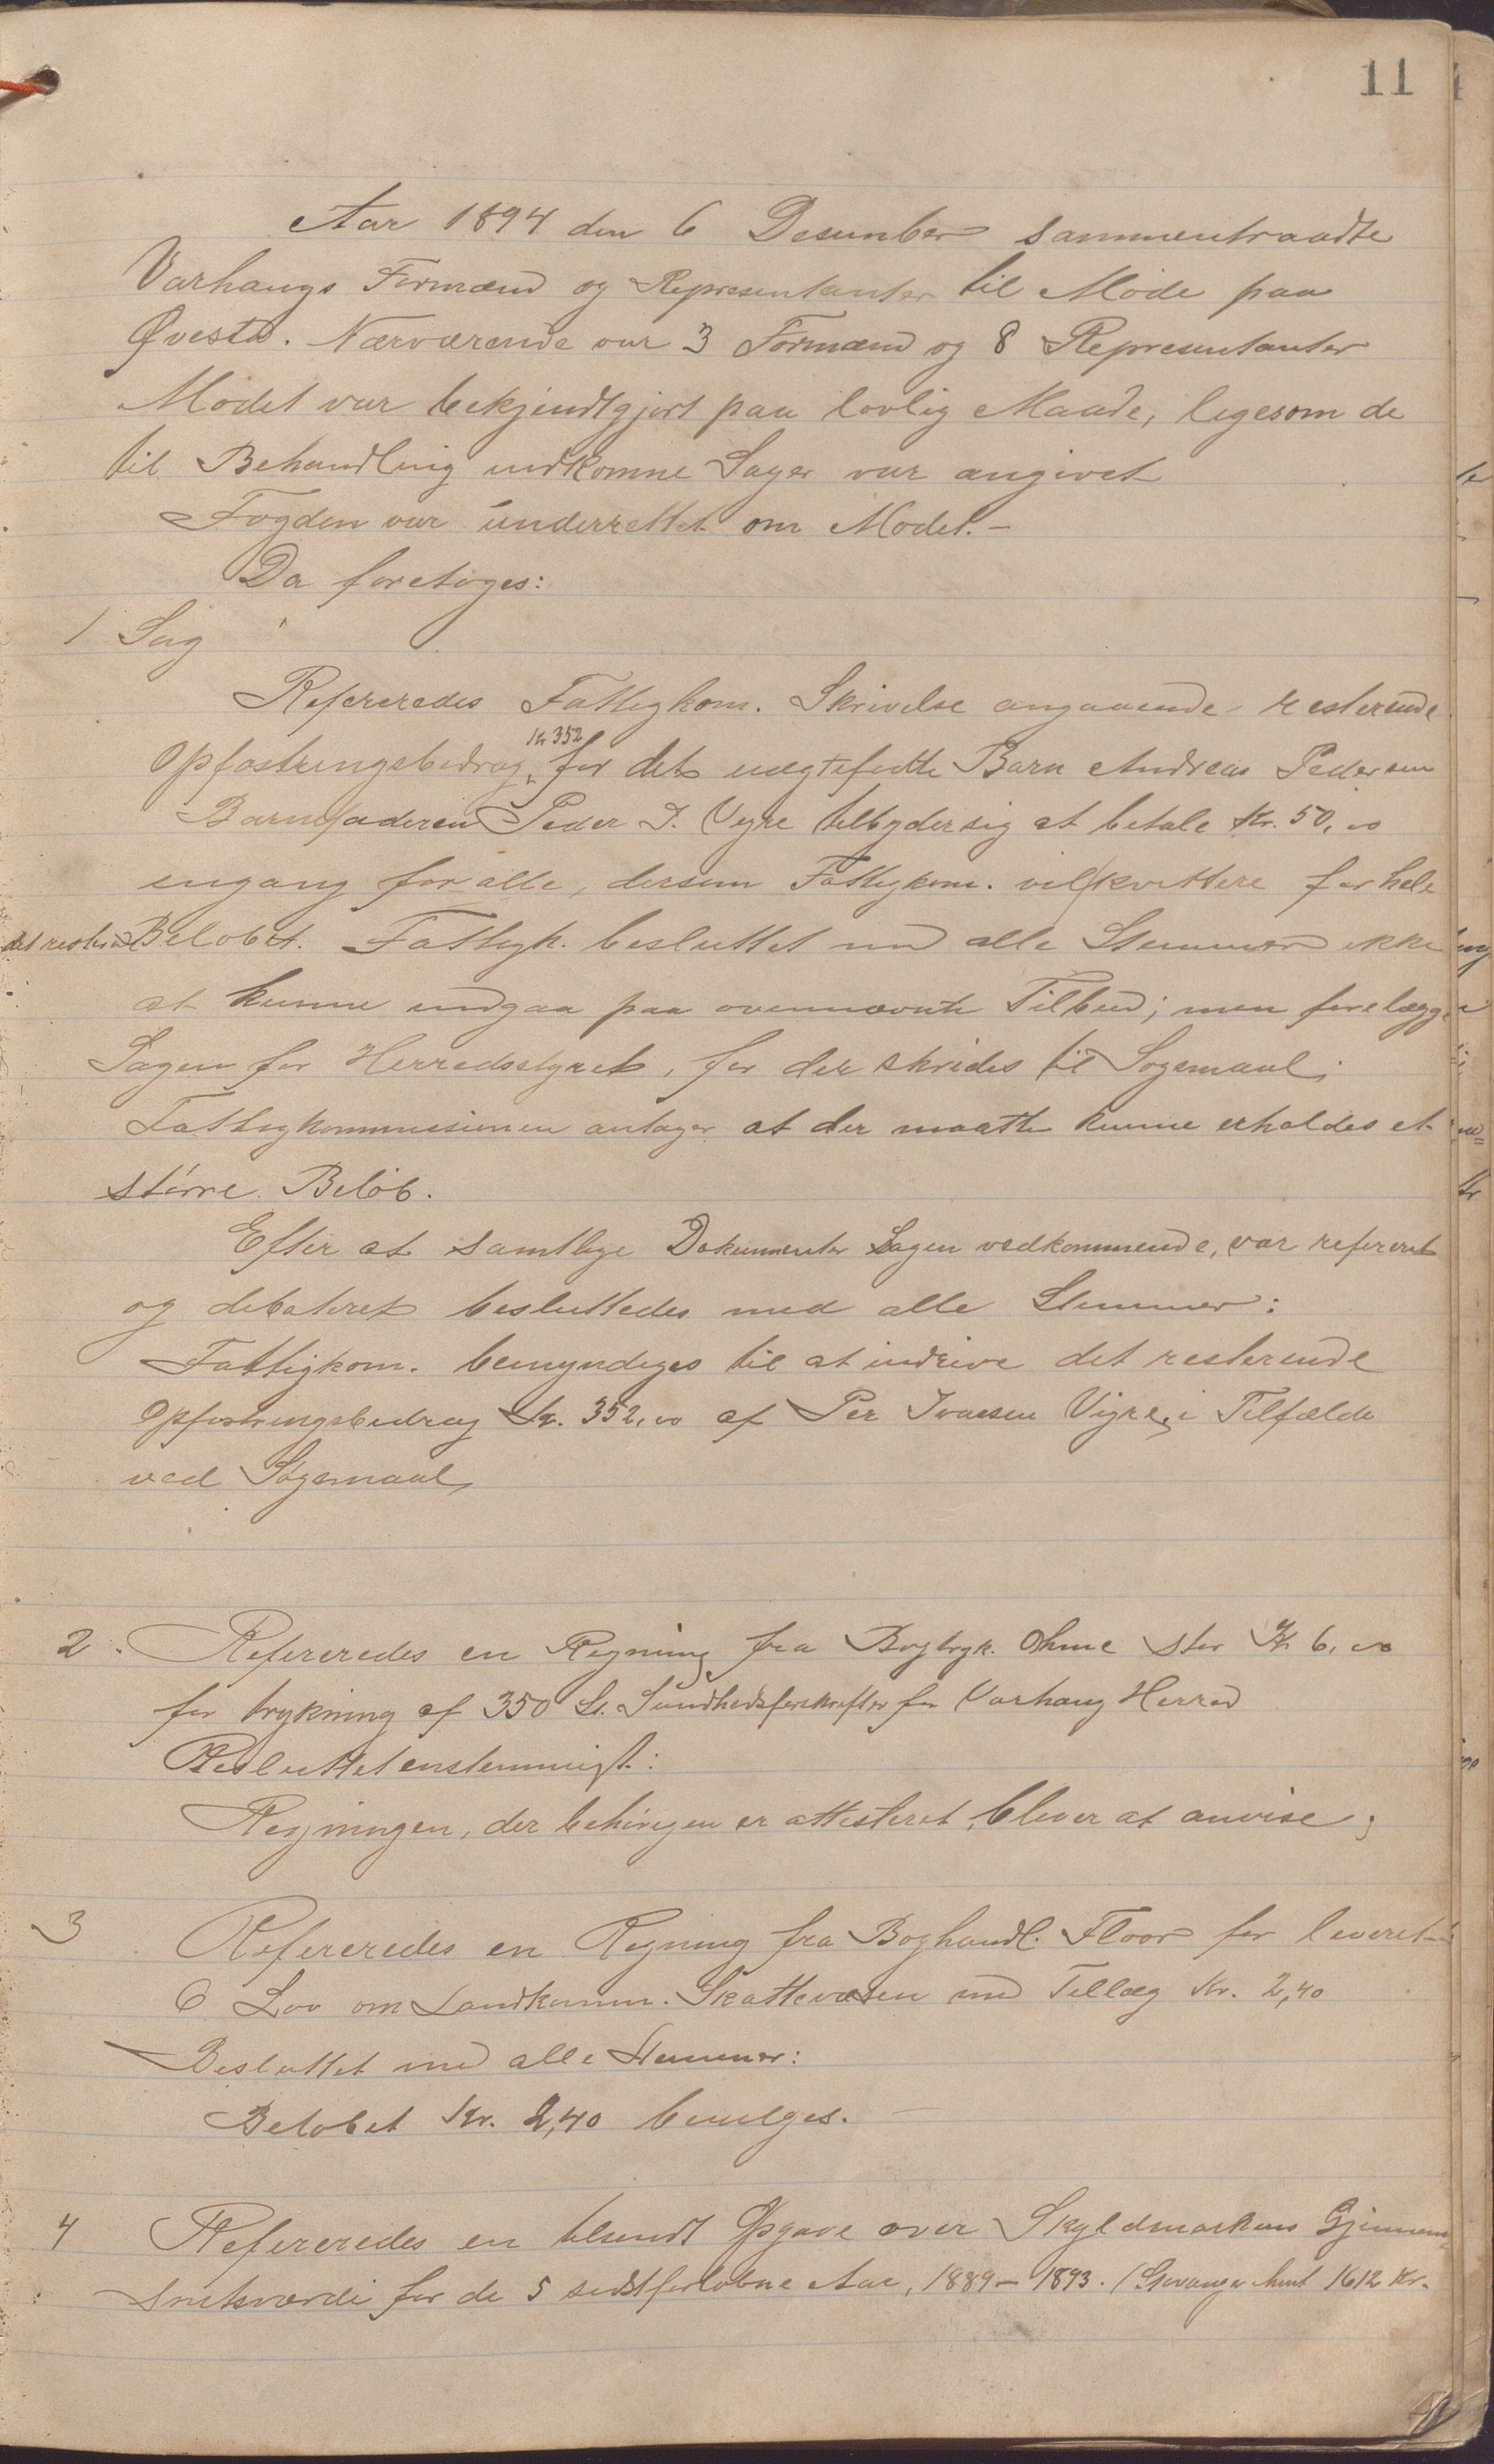 11
Aar 1894 den 6 Desember sammentraadte
Varhaugs Formænd og Representanter til Møde paa
Øvestø. Nærværende var 3 Formænd og 8 Representanter
Mødet var bekjendtgjort paa lovlig Maade, ligesom de
til Behandling indkomne Sager var angivet
Fogden var underrettet om Mødet. –
Da foretoges:
1 Sag
Refereredes Fattigkom. Skrivelse angaaende resterende
Kr 352
Opfostringsbidrag, for det uægtefødte Barn Andreas Pedersen
Barnefaderen Peder I. Vigre tilbyder sig at betale Kr. 50,00
engang for alle, dersom Fattigkom. vil kvittere for hele
det resterend Beløbet. Fattigk. besluttet med alle Stemmer ikke
at kunne indgaa paa ovennævnte Tilbud; men forelægge
Sagen for Herredsstyret, før der skrides til Søgsmaal;
Fattigkommissionen antager at der maatte kunne erholdes et
større Beløb.
Efter at samtlige Dokumenter Sagen vedkommende, var refereret
og debateret besluttedes med alle Stemmer:
Fattigkom. bemyndiges til at indrive det resterende
Opfostringsbidrag Kr. 352,00 af Per Ivarsen Vigre, i Tilfælde
ved Søgsmaal,
2. Refereredes en Regning fra Bogtryk. Ohme stor Kr 6,00
for trykning af 350 St. Sundhedsforskrifter for Varhaug Herred
Besluttet enstemmigt:
Regningen, der behørigen er attesteret, bliver at anvise;
3 Refereredes en Regning fra Boghandl. Floor for leveret
6 Lov om Landkomm. Skattevæsen med Tillæg Kr. 2,40
Besluttet med alle Stemmer:
Beløbet Kr. 2,40 bevilges. –
4 Refereredes en tilsendt Opgave over Skyldmarkens Gjennem-
snitsværdi for de 5 sidstforløbne Aar, 1889 – 1893. (Stavanger Amt 1612 Kr.